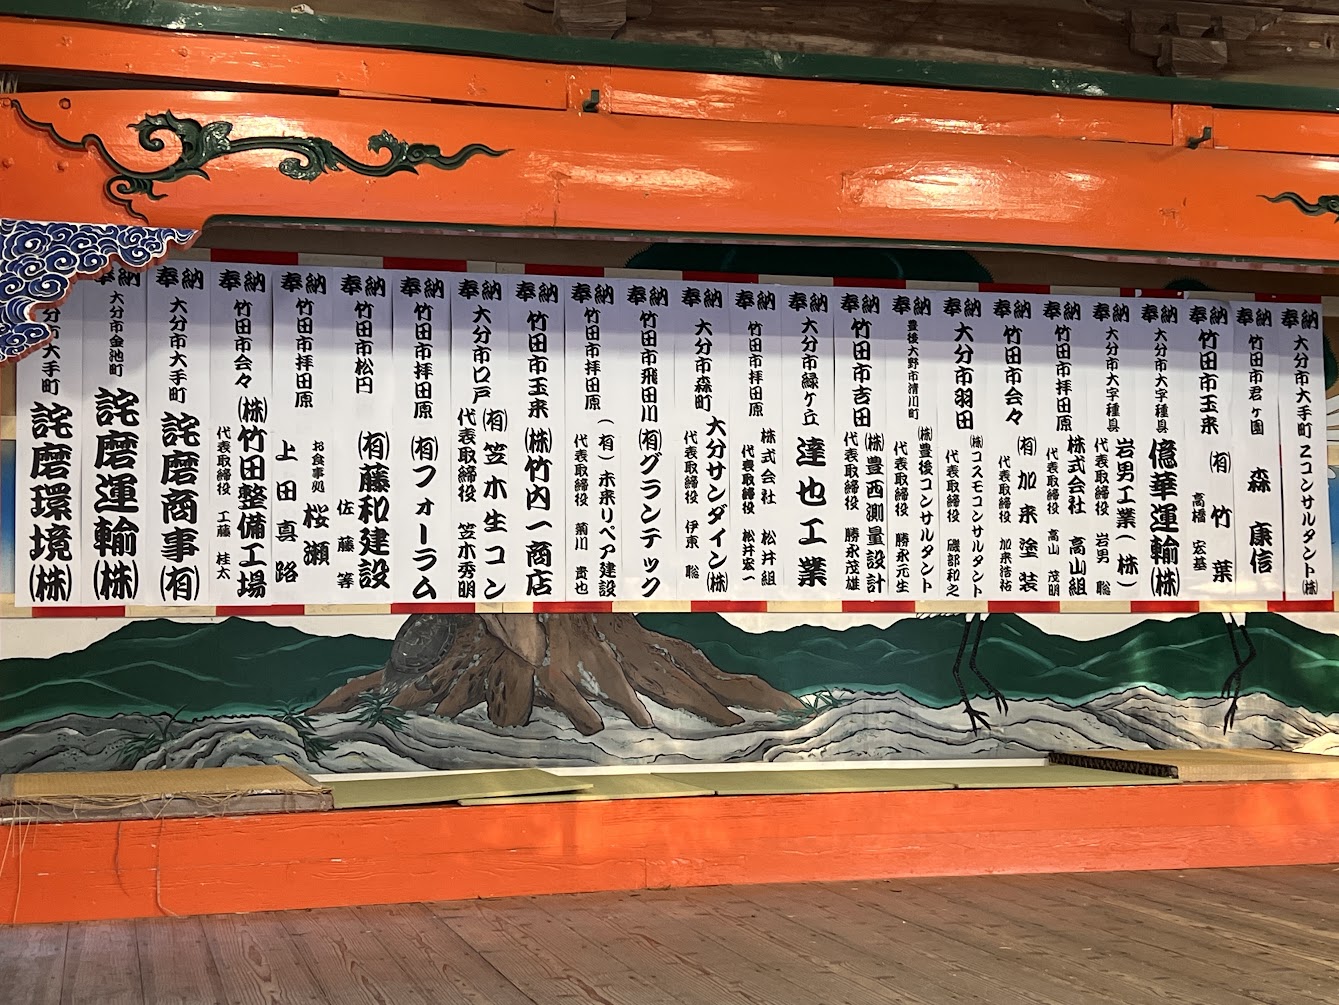 奉納 大分市大手町 Zコンサルタント㈱
奉納 竹田市君ヶ園 森 康信
奉納 竹田市玉来 ㈲竹葉
高橋 宏基
奉納 大分市大字種具 億華運輸㈱
奉納 大分市大字種具 岩男工業(株)
代表取締役 岩男 聡
奉納 竹田市拝田原 株式会社 高山組
代表取締役 高山 茂明
奉納 竹田市会々 ㈲加来塗装
加来浩祐
奉納 大分市羽田 ㈱コスモコンサルタント
代表取締役 磯部和之
奉納 豊後大野市清川町 ㈱豊後コンサルタント
代表取締役 勝永元生
奉納 竹田市吉田 ㈱豊西測量設計
代表取締役 勝永茂雄
奉納 大分市緑ヶ丘 達也工業
奉納 竹田市拝田原 株式会社 松井組
代表取締役 松井宏一
奉納 大分市森町 大分サンダイン㈱
代表取締役 伊東 聡
奉納 竹田市飛田川 ㈲グランテック
奉納 竹田市拝田原 (有)未来リペア建設
代表取締役 菊川 貴也
奉納 竹田市玉来 ㈱竹内一商店
奉納 大分市口戸 ㈲笠木生コン
代表取締役 笠木秀明
奉納 竹田市拝田原 ㈲フォーラム
奉納 竹田市松円 ㈲藤和建設
佐藤 等
奉納 竹田市拝田原 お食事処 桜瀬
上田真路
奉納 竹田市会々 ㈱竹田整備工場
代表取締役 工藤 桂太
奉納 大分市大手町 詫磨商事㈲
奉納 大分市金池町 詫磨運輸㈱
分市大手町 詫磨環境㈱